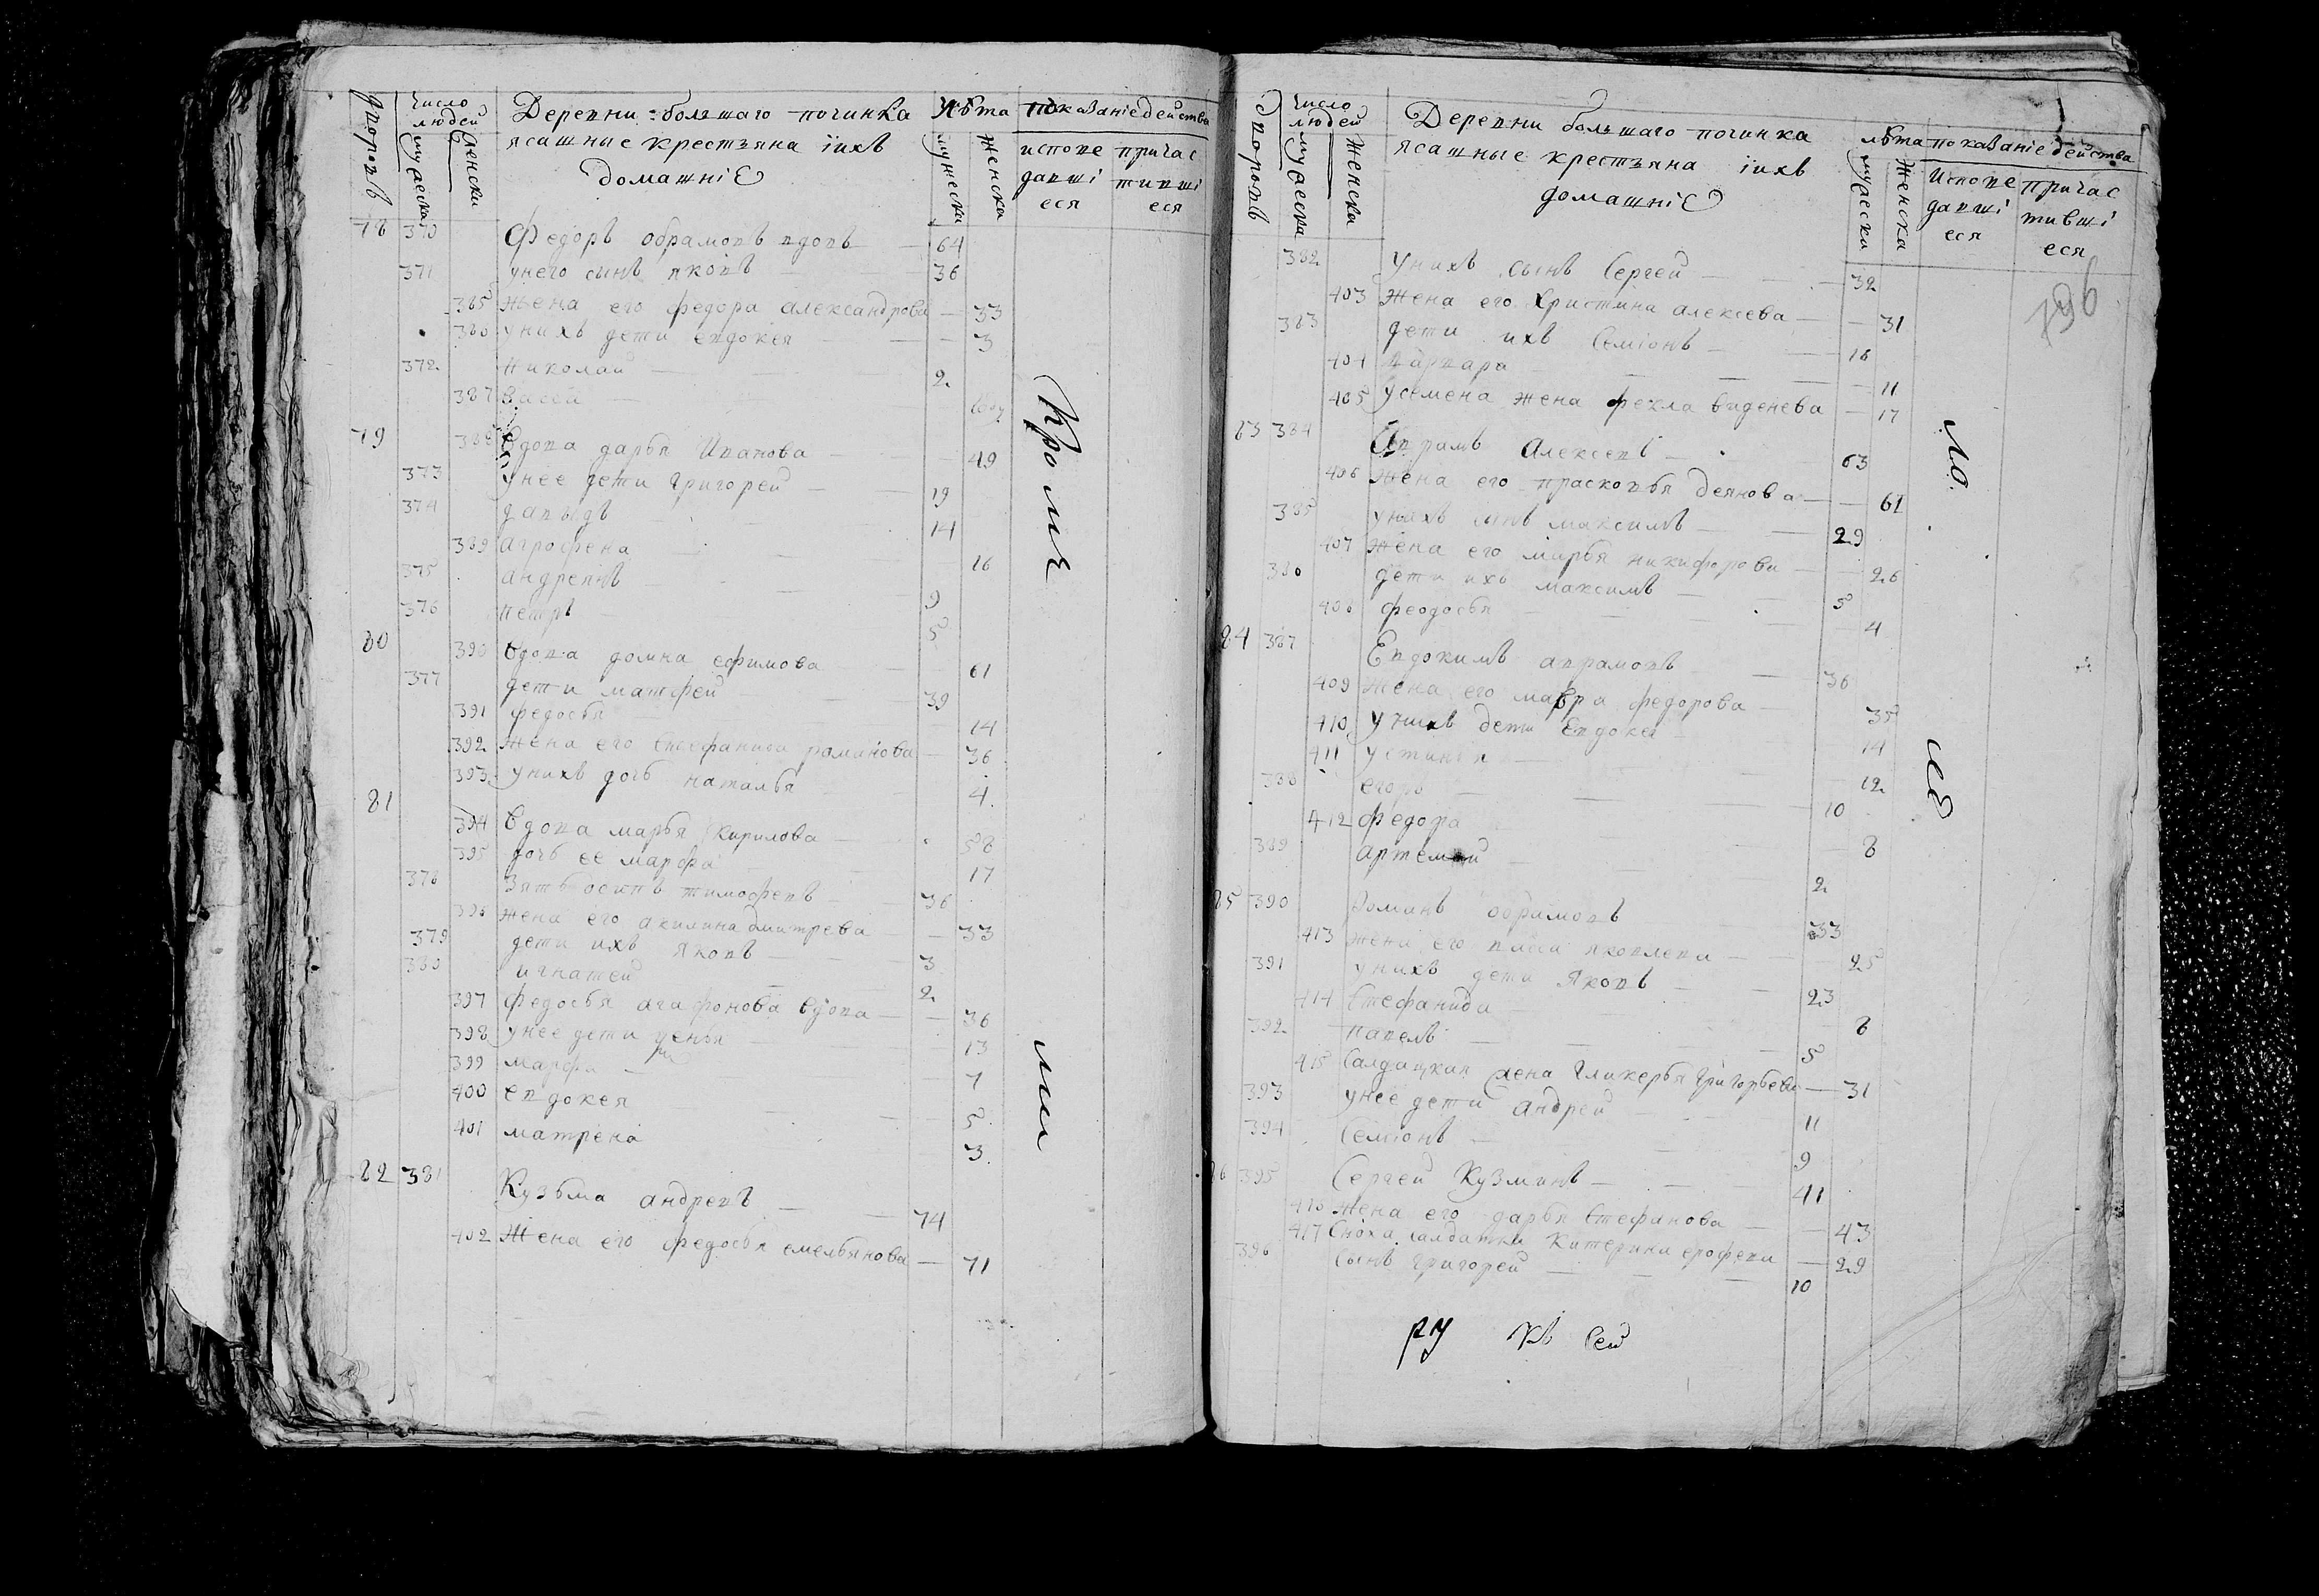 дворовъ
Число людей
мужеска
женска
Деревни большаго починка
ясашные крестьяна iихъ
домашнiе
лѣта
мужеска
женска
показанiе действа
исповедавшiеся
причастившiеся
78 370 Федоръ обрамовъ вдовъ — 64
371 унего сынъ яковъ — 36
385 Жена его федора александрова — 33
386 унихъ дети евдокея — 3
372 Николай — 2
387
79 388 Вдова дарья Иванова — 49
373 унее дети Григорей — 19
374 давыдъ 14
389 агрофена 16
375 андреянъ — 9
376 петръ — 5
80 390 Вдова домна ефимова — 61
377 дети матфей — 39
391 федосья 14
392 Жена его стефанида романова — 36
393 унихъ дочь наталья 4
81
394 Вдова марья кирилова — 58
395 дочь ее марфа 17
378 Зять осипъ тимофевъ — 36
396 жена его акилина дмитрева — 33
379 дети ихъ яковъ — 3
380 игнатей 2
397 федосья агафонова вдова — 36
398 унее дети 13
399 марфа — 7
400 евдокея 5
401 матрена 3
82 381 Кузьма андревъ — 74
402 Жена его федосья емельянова — 71
Кроме
дворовъ
Число людей
мужеска
Женска
Деревни большаго починка
ясашные крестьяна iихъ
домашнiе
лѣта
мужеска
Женска
показанiе действа
Исповедавшiеся
причастившiеся
796
382 Унихъ сынъ Сергей — 32
403 Жена его Христина алексева — 31
383 дети ихъ Семiонъ — 18
404 варвара — 11
405 Усемена жена фекла виденева — 17
83 384 Аврамъ Алексевъ — 63
406 Жена его прасковья деянова — 61
385 унихъ сынъ максимъ — 29
407 Жена его марья никифорова — 26
386 дети ихъ максимъ — 5
408 феодосья — 4
84 387 Евдокимъ аврамовъ — 36
409 Жена его мавра федорова — 35
410 Унихъ дети Евдокея 14
411 устинья — 12
388 егоръ — 10
412 федора 8
389 артемей — 2
85 390 Романъ обрамовъ 33
413 Жена его яковлева — 25
391 унихъ дети яковъ — 23
414 Стефанида — 8
392 павелъ — 5
415 Салдацкая жена Гликерья Григорьева — 31
393 унее дети андрей — 11
394 Семiонъ — 9
86 395 Сергей Кузминъ — 41
416 Жена его дарья Стефанова — 43
417 Сноха салдатка Катерина ерофева — 29
396 Сынъ григорей — 10
ру къ сей